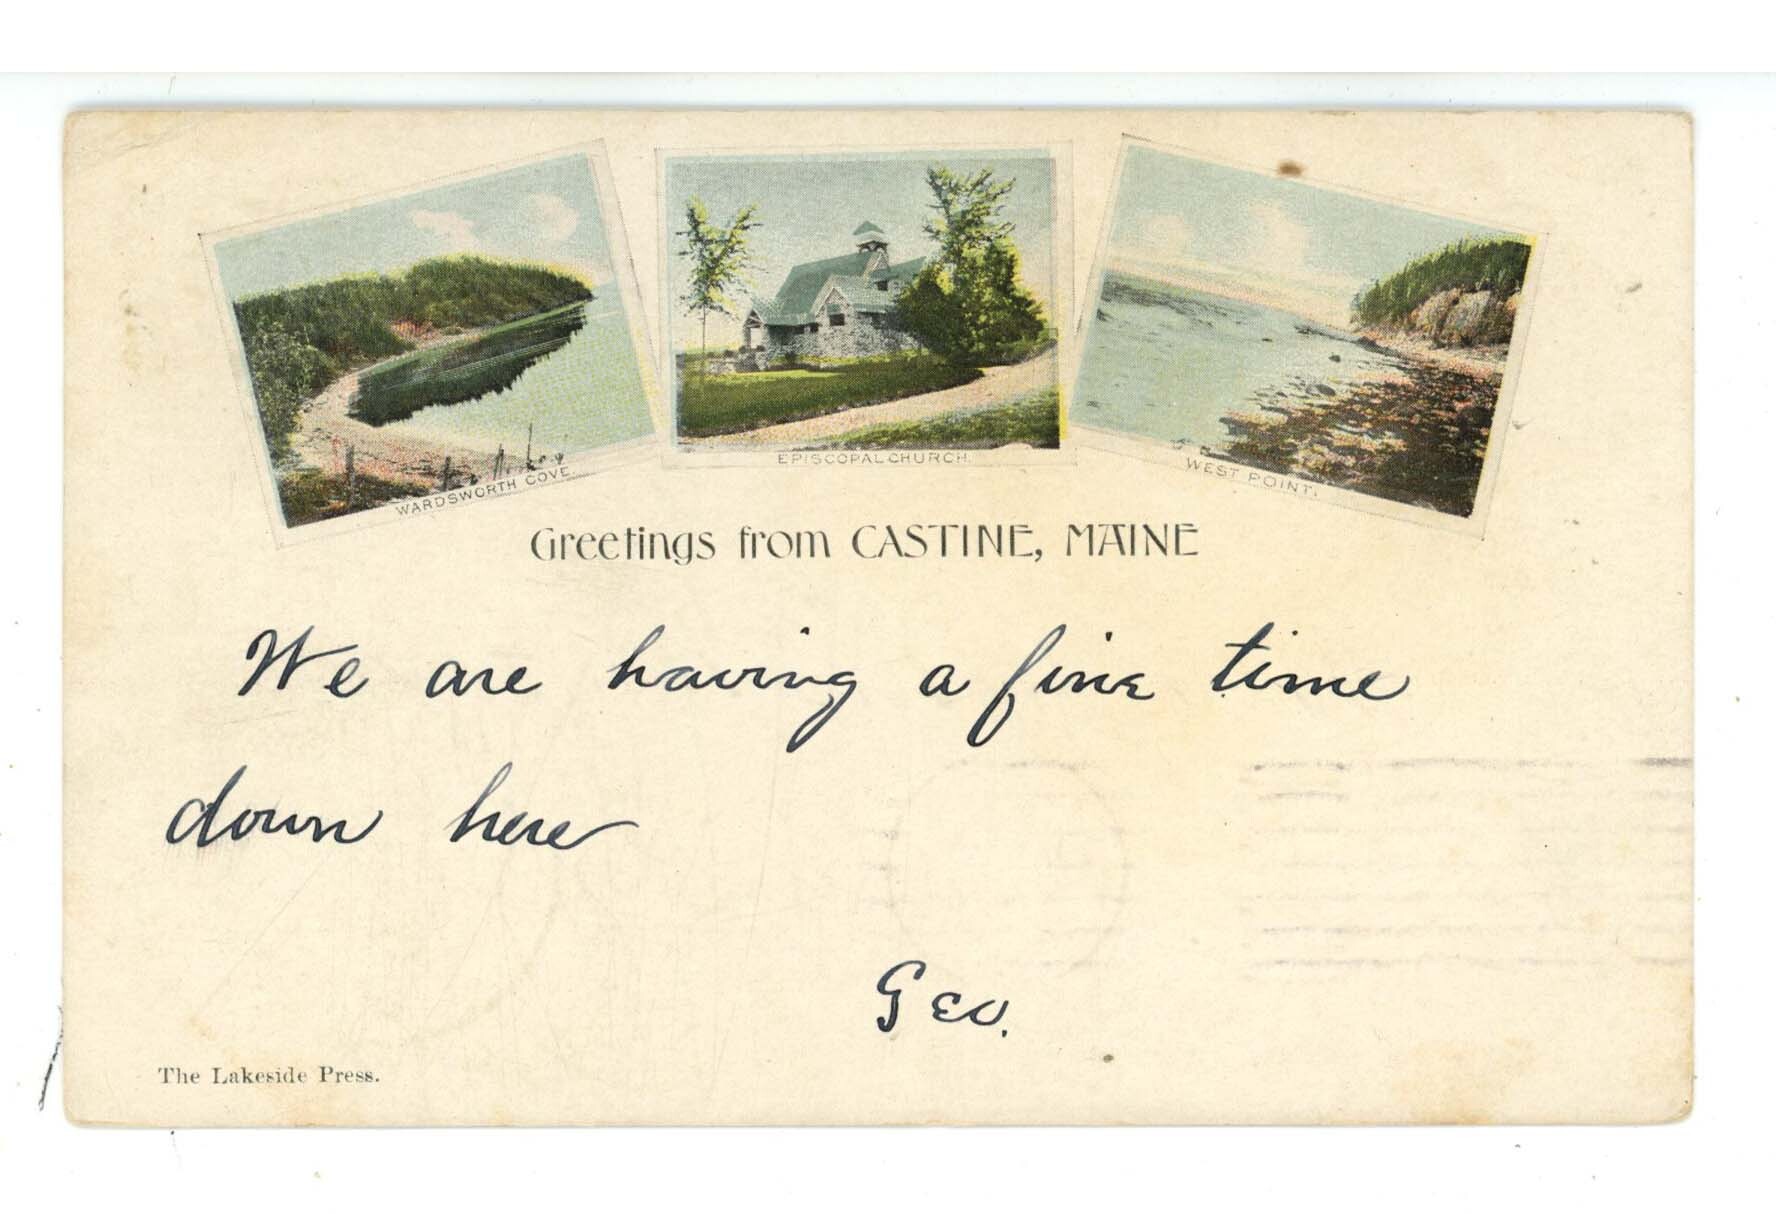 WARDSWORTH COVE.
EPISCOPAL CHURCH.
WEST POINT.
Greetings from CASTINE, MAINE
We are having a fine time
down here
Geo.
The Lakeside Press.